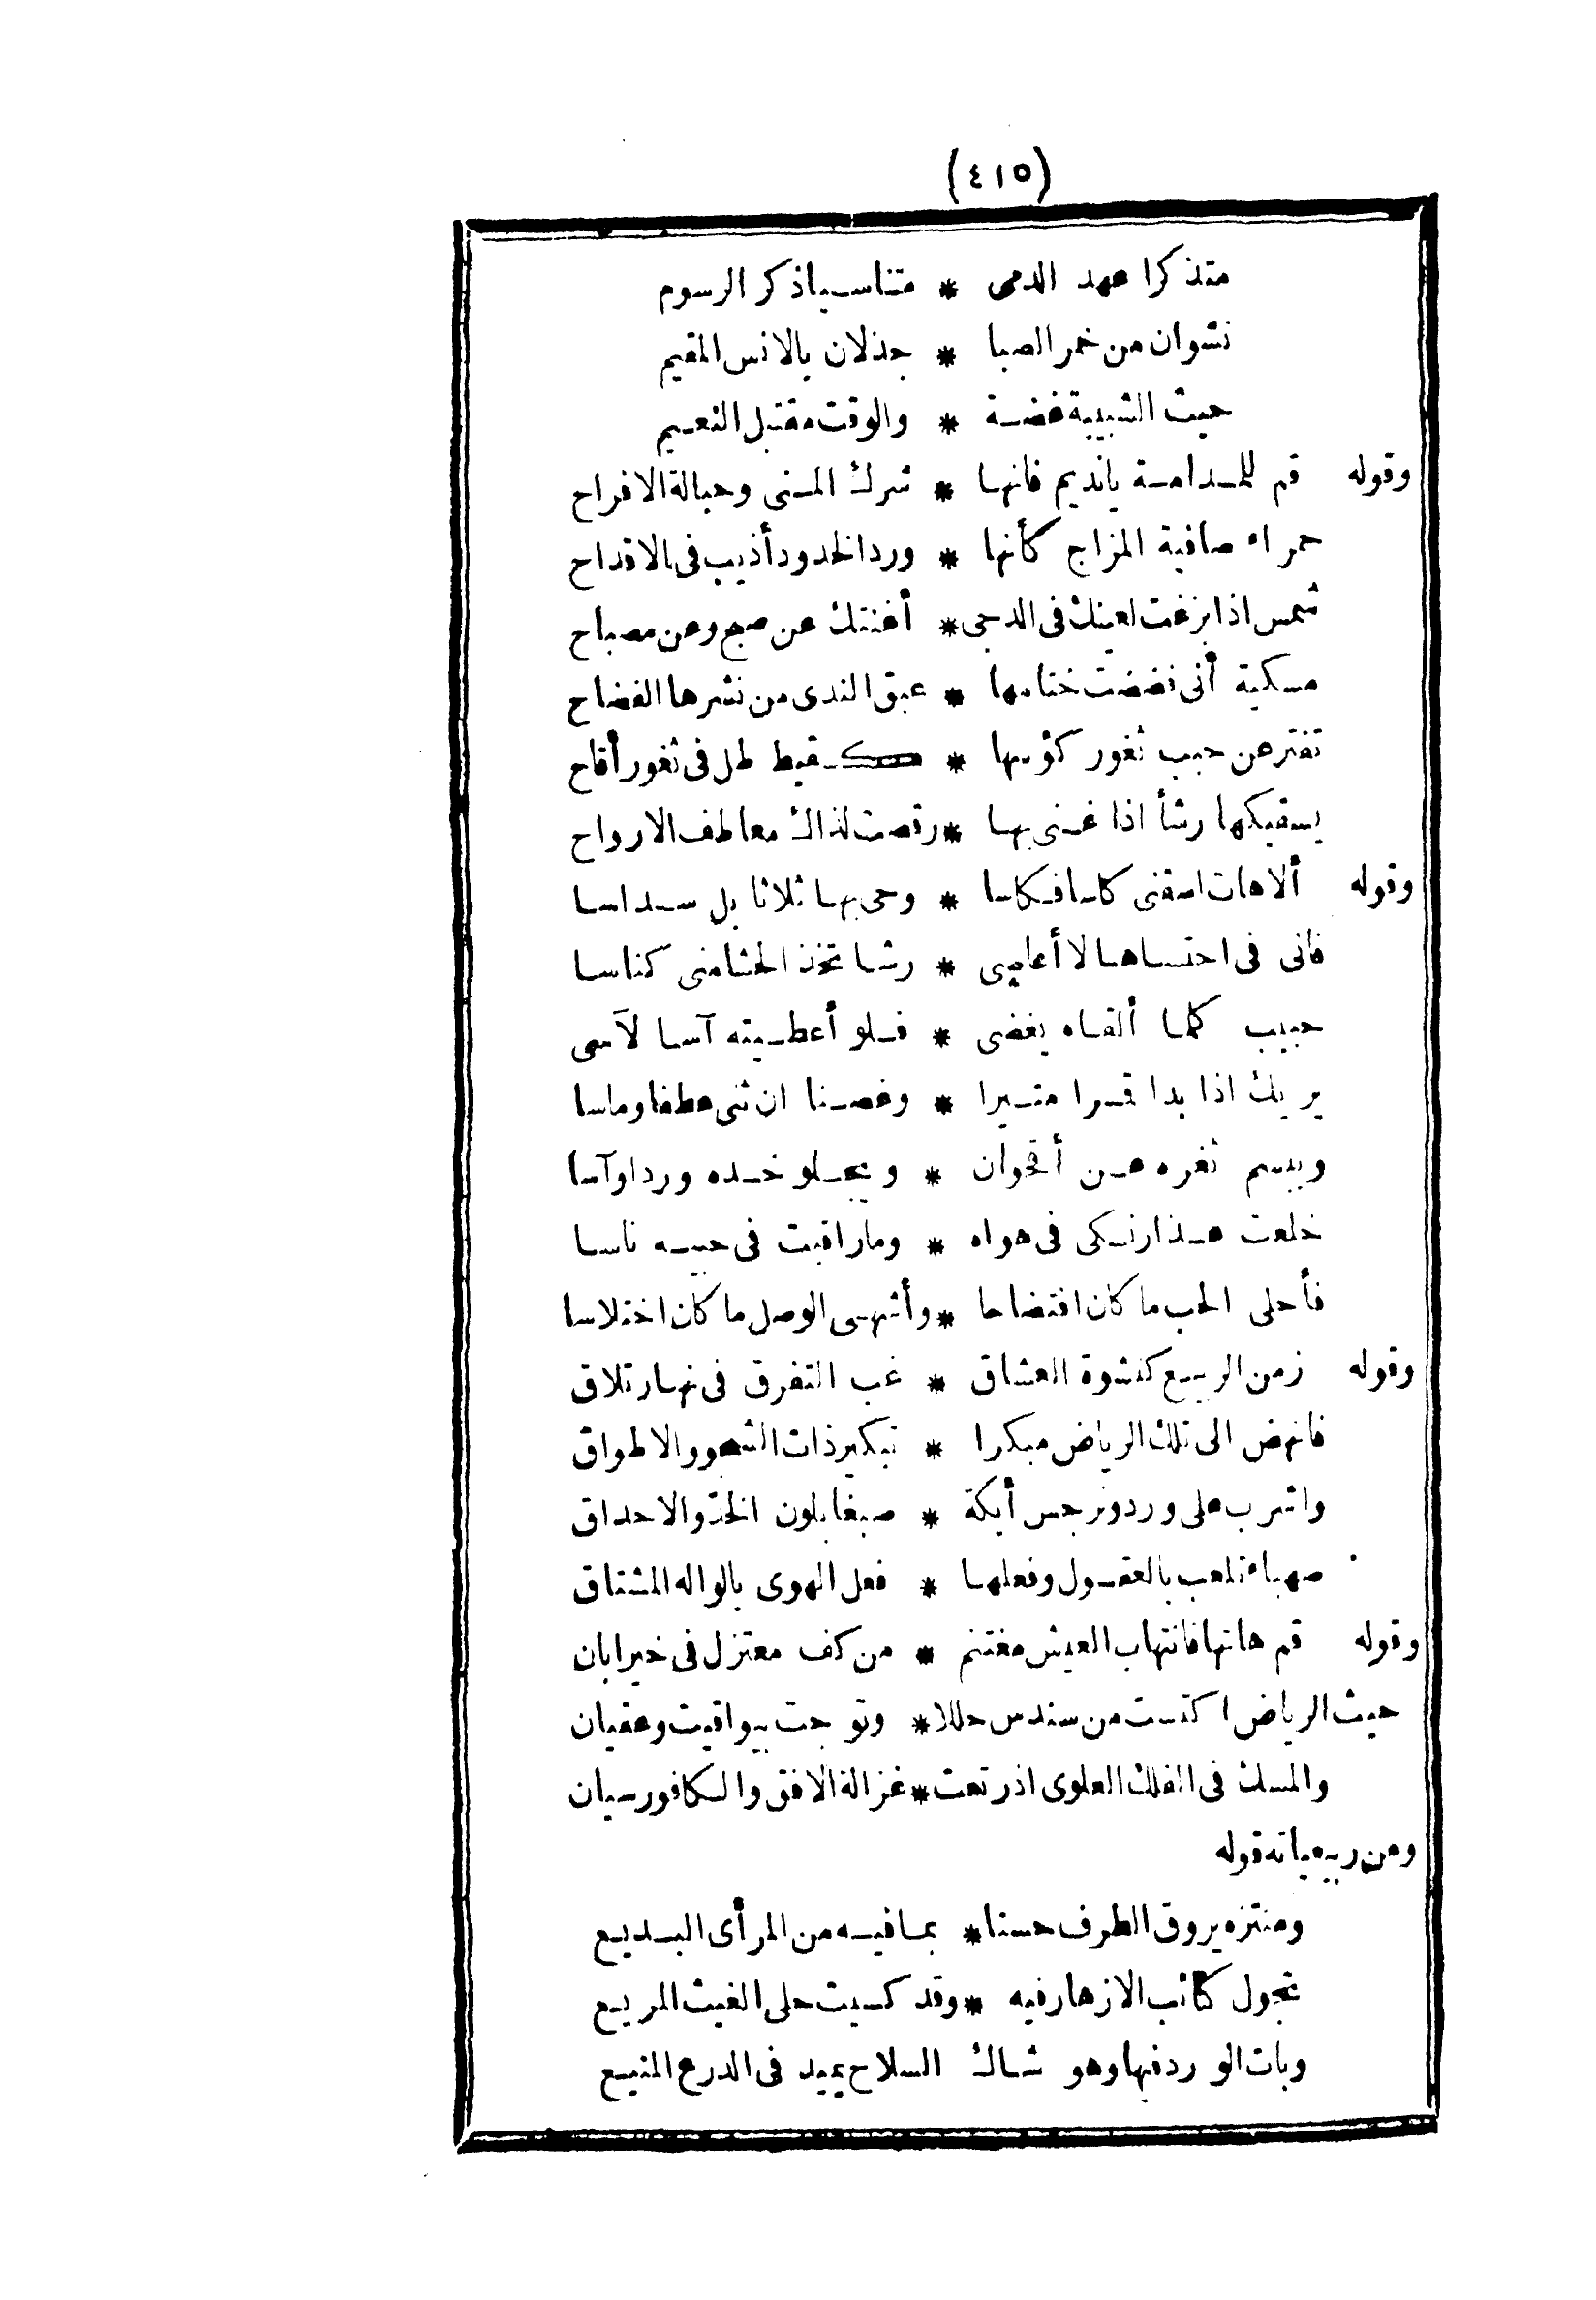 (٤١٥)
متذكرا عهد الدمى * متناسيا ذكر الرسوم
نشوان من خمر الصبا * جذلان بالانس المقيم
حيث الشبيبة غضة * والوقت مقتبل النعيم
وقوله قم للمدامة يانديم فانها * شرك المنى وحبالة الافراح
حمراء صافية المزاج كأنها * ورد الخدود أذيب فى الاقداح
شمس اذا بزغت لعينك فى الدجى * أغنتك عن صبح وعن مصباح
مسكية أنى فضضت ختامها * عبق الندى من نشرها الفضاح
تفتر عن حبب ثغور كؤسها * كقيط طل فى ثغور أقاح
يسقيكها رشأ اذا غنى بها * رقصت لذاك معاطف الارواح
وقوله ألاهات اسقنى كاسا فكاسا * وحى بها ثلاثا بل سداسا
فانى فى احتساها لا أعاصى * رشا تخذ الحشا منى كناسا
حبيب كلما ألقاه يغضى * فلو أعطيته آسا لآسى
يريك اذا بدا قمرا منيرا * وغصنا ان ثنى عطفا وماسا
ويبسم ثغره عن أقحوان * ويجلو خده وردا وآسا
خلعت عذار نسكى فى هواه * وما راقبت فى حبيه ناسا
فأحلى الحب ما كان افتضاحا * وأشهى الوصل ما كان اختلاسا
وقوله زمن الربيع كنشوة العشاق * غب التفرق فى نهار تلاق
فانهض الى تلك الرياض مبكرا * تبكير ذات الشجو والاطواق
واشرب على ورد ونرجس أيكة * صبغا بلون الخد والاحداق
صهباء تلعب بالعقول وفعلها * فعل الهوى بالواله المشتاق
وقوله قم هاتها فانتهاب العيش مغتنم * من كف معتزل فى خير ابان
حيث الرياض اكتست من سندس حللا * وتوجت بيواقيت وعقيان
والمسك فى الفلك العلوى اذ رتعت * غزالة الافق والكافور سيان
ومن ربيعياته قوله
ومنتزه يروق الطرف حسنا * بما فيه من المرأى البديع
تجول كتائب الازهار فيه * وقد كسيت حلى الغيث المريع
وبات الورد فيها وهو شاك السلاح يميد فى الدرع المنيع